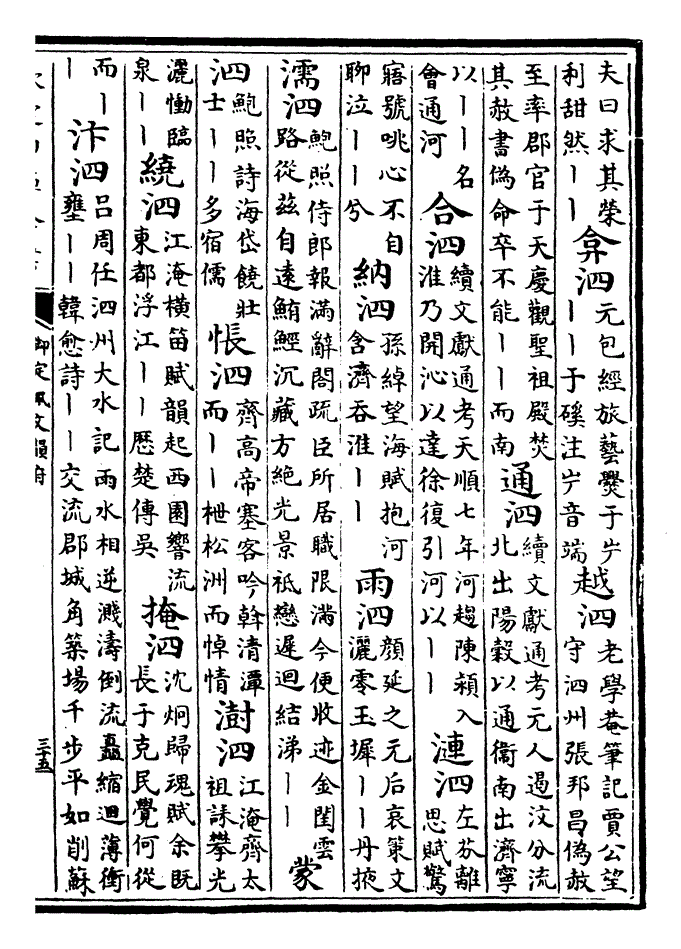 夫曰求其榮利甜然丨丨 弇泗 元包經旅藝㸑于屵丨丨于磎注屵音端 越泗 老學菴筆記賈公望守泗州張邦昌偽赦
至率郡官于天慶觀聖祖殿焚其赦書偽命卒不能丨丨而南 通泗 續文獻通考元人遏汶分流北出陽穀以通衞南出濟寧
以丨丨名會通河 合泗 續文獻通考天順七年河趨陳潁入淮乃開沁以達徐復引河以丨丨 漣泗 左芬離思賦驚
寤號咷心不自聊泣丨丨兮 納泗 孫綽望海賦抱河含濟吞淮丨丨 雨泗 顔延之元后哀策文灑零玉墀丨丨丹掖
濡泗 鮑照侍郎報滿辭閤疏臣所居職限滿今便收迹金閨雲路從兹自遠鮪鱷沉藏方絶光景祗戀遲迴結涕丨丨 蒙
泗 鮑照詩海岱饒壯士丨丨多宿儒 悵泗 齊高帝塞客吟斡清潭而丨丨枻松洲而悼情 澍泗 江淹齊太祖誄攀光
灑慟臨泉丨丨 繞泗 江淹橫笛賦韻起西園響流東都浮江丨丨歴楚傳吳 掩泗 沈炯歸魂賦余旣長于克民覺何從
而丨丨 汴泗 吕周任泗州大水記兩水相逆濺濤倒流矗縮迴薄衝壅丨丨韓愈詩丨丨交流郡城角築場千步平如削蘇
御定佩文韻府
三十五